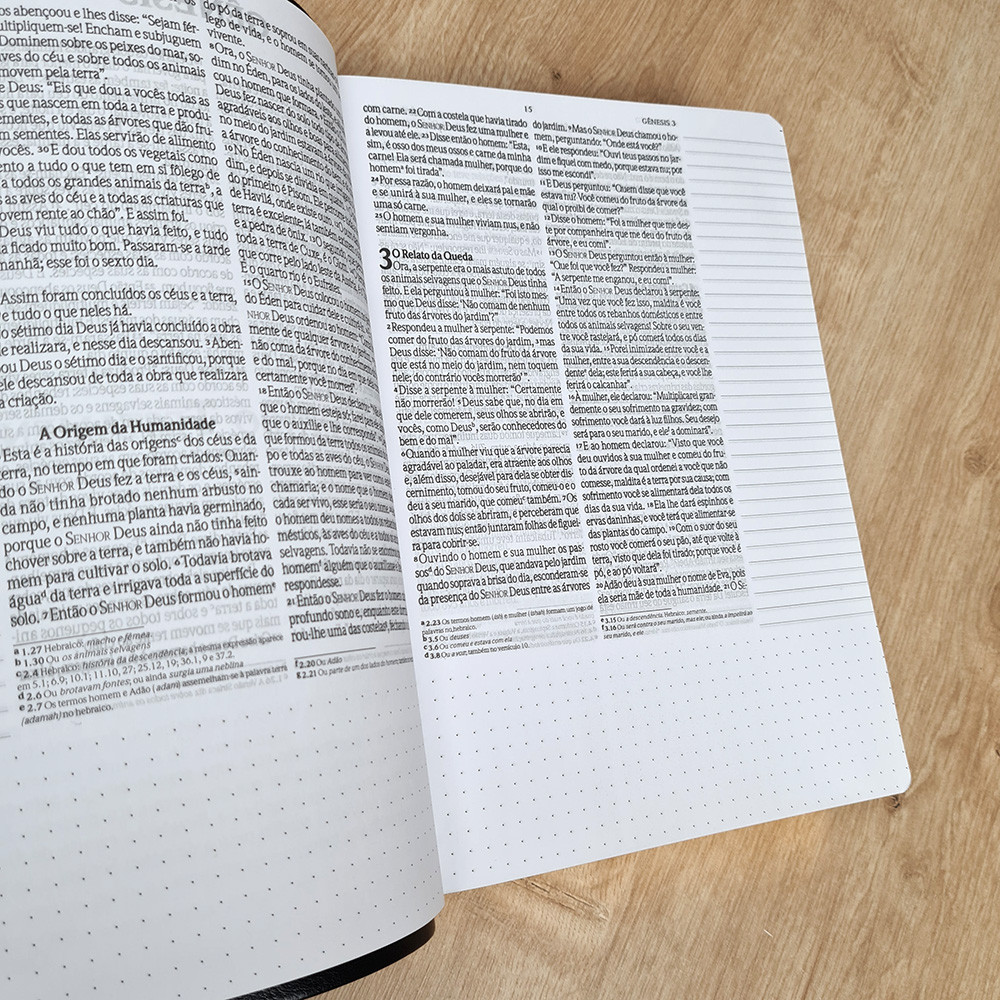 os abençoou e lhes disse: “Sejam fér-
ultipliquem-se! Encham e subjuguem
Dominem sobre os peixes do mar, so-
ves do céu e sobre todos os animais
movem pela terra”.
e Deus: “Eis que dou a vocês todas as
s que nascem em toda a terra e produ-
ementes, e todas as árvores que dão fru-
m sementes. Elas servirão de alimento
vocês. 30 E dou todos os vegetais como
ento a tudo o que tem em si fôlego de
a todos os grandes animais da terraᵇ, a
s as aves do céu e a todas as criaturas que
ovem rente ao chão”. E assim foi.
Deus viu tudo o que havia feito, e tudo
a ficado muito bom. Passaram-se a tarde
manhã; esse foi o sexto dia.
Assim foram concluídos os céus e a terra,
e tudo o que neles há.
o sétimo dia Deus já havia concluído a obra
e realizara, e nesse dia descansou. 3 Aben-
ou Deus o sétimo dia e o santificou, porque
ele descansou de toda a obra que realizara
a criação.
A Origem da Humanidade
Esta é a história das origensᶜ dos céus e da
terra, no tempo em que foram criados: Quan-
do o SENHOR Deus fez a terra e os céus, 5 ain-
da não tinha brotado nenhum arbusto no
campo, e nenhuma planta havia germinado,
porque o SENHOR Deus ainda não tinha feito
chover sobre a terra, e também não havia ho-
mem para cultivar o solo. 6 Todavia brotava
águaᵈ da terra e irrigava toda a superfície do
solo. 7 Então o SENHOR Deus formou o homemᵉ
a 1.27 Hebraico: macho e fêmea.
b 1.30 Ou os animais selvagens
c 2.4 Hebraico: história da descendência; a mesma expressão aparece
em 5.1; 6.9; 10.1; 11.10, 27; 25.12, 19; 36.1, 9 e 37.2.
d 2.6 Ou brotavam fontes; ou ainda surgia uma neblina
e 2.7 Os termos homem e Adão (adam) assemelham-se à palavra terra
(adamah) no hebraico.
do pó da terra e soprou em suas
lego de vida, e o homem se tornou
vivente.
8 Ora, o SENHOR Deus tinha
dim no Éden, para os lados do
cou o homem que formara.
Deus fez nascer do solo todo
agradáveis aos olhos e boas para
no meio do jardim estavam a
a árvore do conhecimento do
10 No Éden nascia um rio que
dim, e depois se dividia em
do primeiro é Pisom. Ele percorre
de Havilá, onde existe ouro.
terra é excelente; lá também existem
e a pedra de ônix. 13 O segundo,
toda a terra de Cuxe. 14 O
que corre pelo lado leste da
E o quarto rio é o Eufrates.
15 O SENHOR Deus colocou o homem
do Éden para cuidar dele e cultivá-
NHOR Deus ordenou ao homem:
mente de qualquer árvore do jardim,
não coma da árvore do conhecimento
e do mal, porque no dia em que
certamente você morrerá”.
18 Então o SENHOR Deus declarou:
que o homem esteja só; farei para ele
que o auxilie e lhe corresponda”.
que formou da terra todos os animais
po e todas as aves do céu, o SENHOR
trouxe ao homem para ver como
chamaria; e o nome que o homem
cada ser vivo, esse seria o seu nome.
o homem deu nomes a todos os rebanhos
mésticos, às aves do céu e a todos os
selvagens. Todavia não se encontrou
homemᶠ alguém que o auxiliasse e
respondesse.
21 Então o SENHOR Deus fez o homem
profundo sono e, enquanto este
rou-lhe uma das costelasᵍ, fechando
f 2.20 Ou Adão
g 2.21 Ou parte de um dos lados do homem;
15
GÊNESIS 3
com carne. 22 Com a costela que havia tirado
do homem, o SENHOR Deus fez uma mulher e
a levou até ele. 23 Disse então o homem: “Esta,
sim, é osso dos meus ossos e carne da minha
carne! Ela será chamada mulher, porque do
homemᵃ foi tirada”.
24 Por essa razão, o homem deixará pai e mãe
e se unirá à sua mulher, e eles se tornarão
uma só carne.
25 O homem e sua mulher viviam nus, e não
sentiam vergonha.
3 O Relato da Queda
Ora, a serpente era o mais astuto de todos
os animais selvagens que o SENHOR Deus tinha
feito. E ela perguntou à mulher: “Foi isto mes-
mo que Deus disse: ‘Não comam de nenhum
fruto das árvores do jardim’?”
2 Respondeu a mulher à serpente: “Podemos
comer do fruto das árvores do jardim, 3 mas
Deus disse: ‘Não comam do fruto da árvore
que está no meio do jardim, nem toquem
nele; do contrário vocês morrerão’ ”.
4 Disse a serpente à mulher: “Certamente
não morrerão! 5 Deus sabe que, no dia em
que dele comerem, seus olhos se abrirão, e
vocês, como Deusᵇ, serão conhecedores do
bem e do mal”.
6 Quando a mulher viu que a árvore parecia
agradável ao paladar, era atraente aos olhos
e, além disso, desejável para dela se obter dis-
cernimento, tomou do seu fruto, comeu-o e o
deu a seu marido, que comeuᶜ também. 7 Os
olhos dos dois se abriram, e perceberam que
estavam nus; então juntaram folhas de figuei-
ra para cobrir-se.
8 Ouvindo o homem e sua mulher os pas-
sosᵈ do SENHOR Deus, que andava pelo jardim
quando soprava a brisa do dia, esconderam-se
da presença do SENHOR Deus entre as árvores
a 2.23 Os termos homem (ish) e mulher (ishah) formam um jogo de
palavras no hebraico.
b 3.5 Ou deuses
c 3.6 Ou comeu e estava com ela
d 3.8 Ou a voz; também no versículo 10.
do jardim. 9 Mas o SENHOR Deus chamou o ho-
mem, perguntando: “Onde está você?”
10 E ele respondeu: “Ouvi teus passos no jar-
dim e fiquei com medo, porque estava nu; por
isso me escondi”.
11 E Deus perguntou: “Quem disse que você
estava nu? Você comeu do fruto da árvore da
qual o proibi de comer?”
12 Disse o homem: “Foi a mulher que me des-
te por companheira que me deu do fruto da
árvore, e eu comi”.
13 O SENHOR Deus perguntou então à mulher:
“Que foi que você fez?” Respondeu a mulher:
“A serpente me enganou, e eu comi”.
14 Então o SENHOR Deus declarou à serpente:
“Uma vez que você fez isso, maldita é você
entre todos os rebanhos domésticos e entre
todos os animais selvagens! Sobre o seu ven-
tre você rastejará, e pó comerá todos os dias
da sua vida. 15 Porei inimizade entre você e a
mulher, entre a sua descendência e o descen-
denteᵉ dela; este ferirá a sua cabeça, e você lhe
ferirá o calcanhar”.
16 À mulher, ele declarou: “Multiplicarei gran-
demente o seu sofrimento na gravidez; com
sofrimento você dará à luz filhos. Seu desejo
será para o seu marido, e eleᶠ a dominará”.
17 E ao homem declarou: “Visto que você
deu ouvidos à sua mulher e comeu do fru-
to da árvore da qual ordenei a você que não
comesse, maldita é a terra por sua causa; com
sofrimento você se alimentará dela todos os
dias da sua vida. 18 Ela lhe dará espinhos e
ervas daninhas, e você terá que alimentar-se
das plantas do campo. 19 Com o suor do seu
rosto você comerá o seu pão, até que volte à
terra, visto que dela foi tirado; porque você é
pó, e ao pó voltará”.
20 Adão deu à sua mulher o nome de Eva, pois
ela seria mãe de toda a humanidade. 21 O SE-
e 3.15 Ou a descendência. Hebraico: semente.
f 3.16 Ou será contra o seu marido, mas ele; ou ainda, a impelirá ao
seu marido, e ele